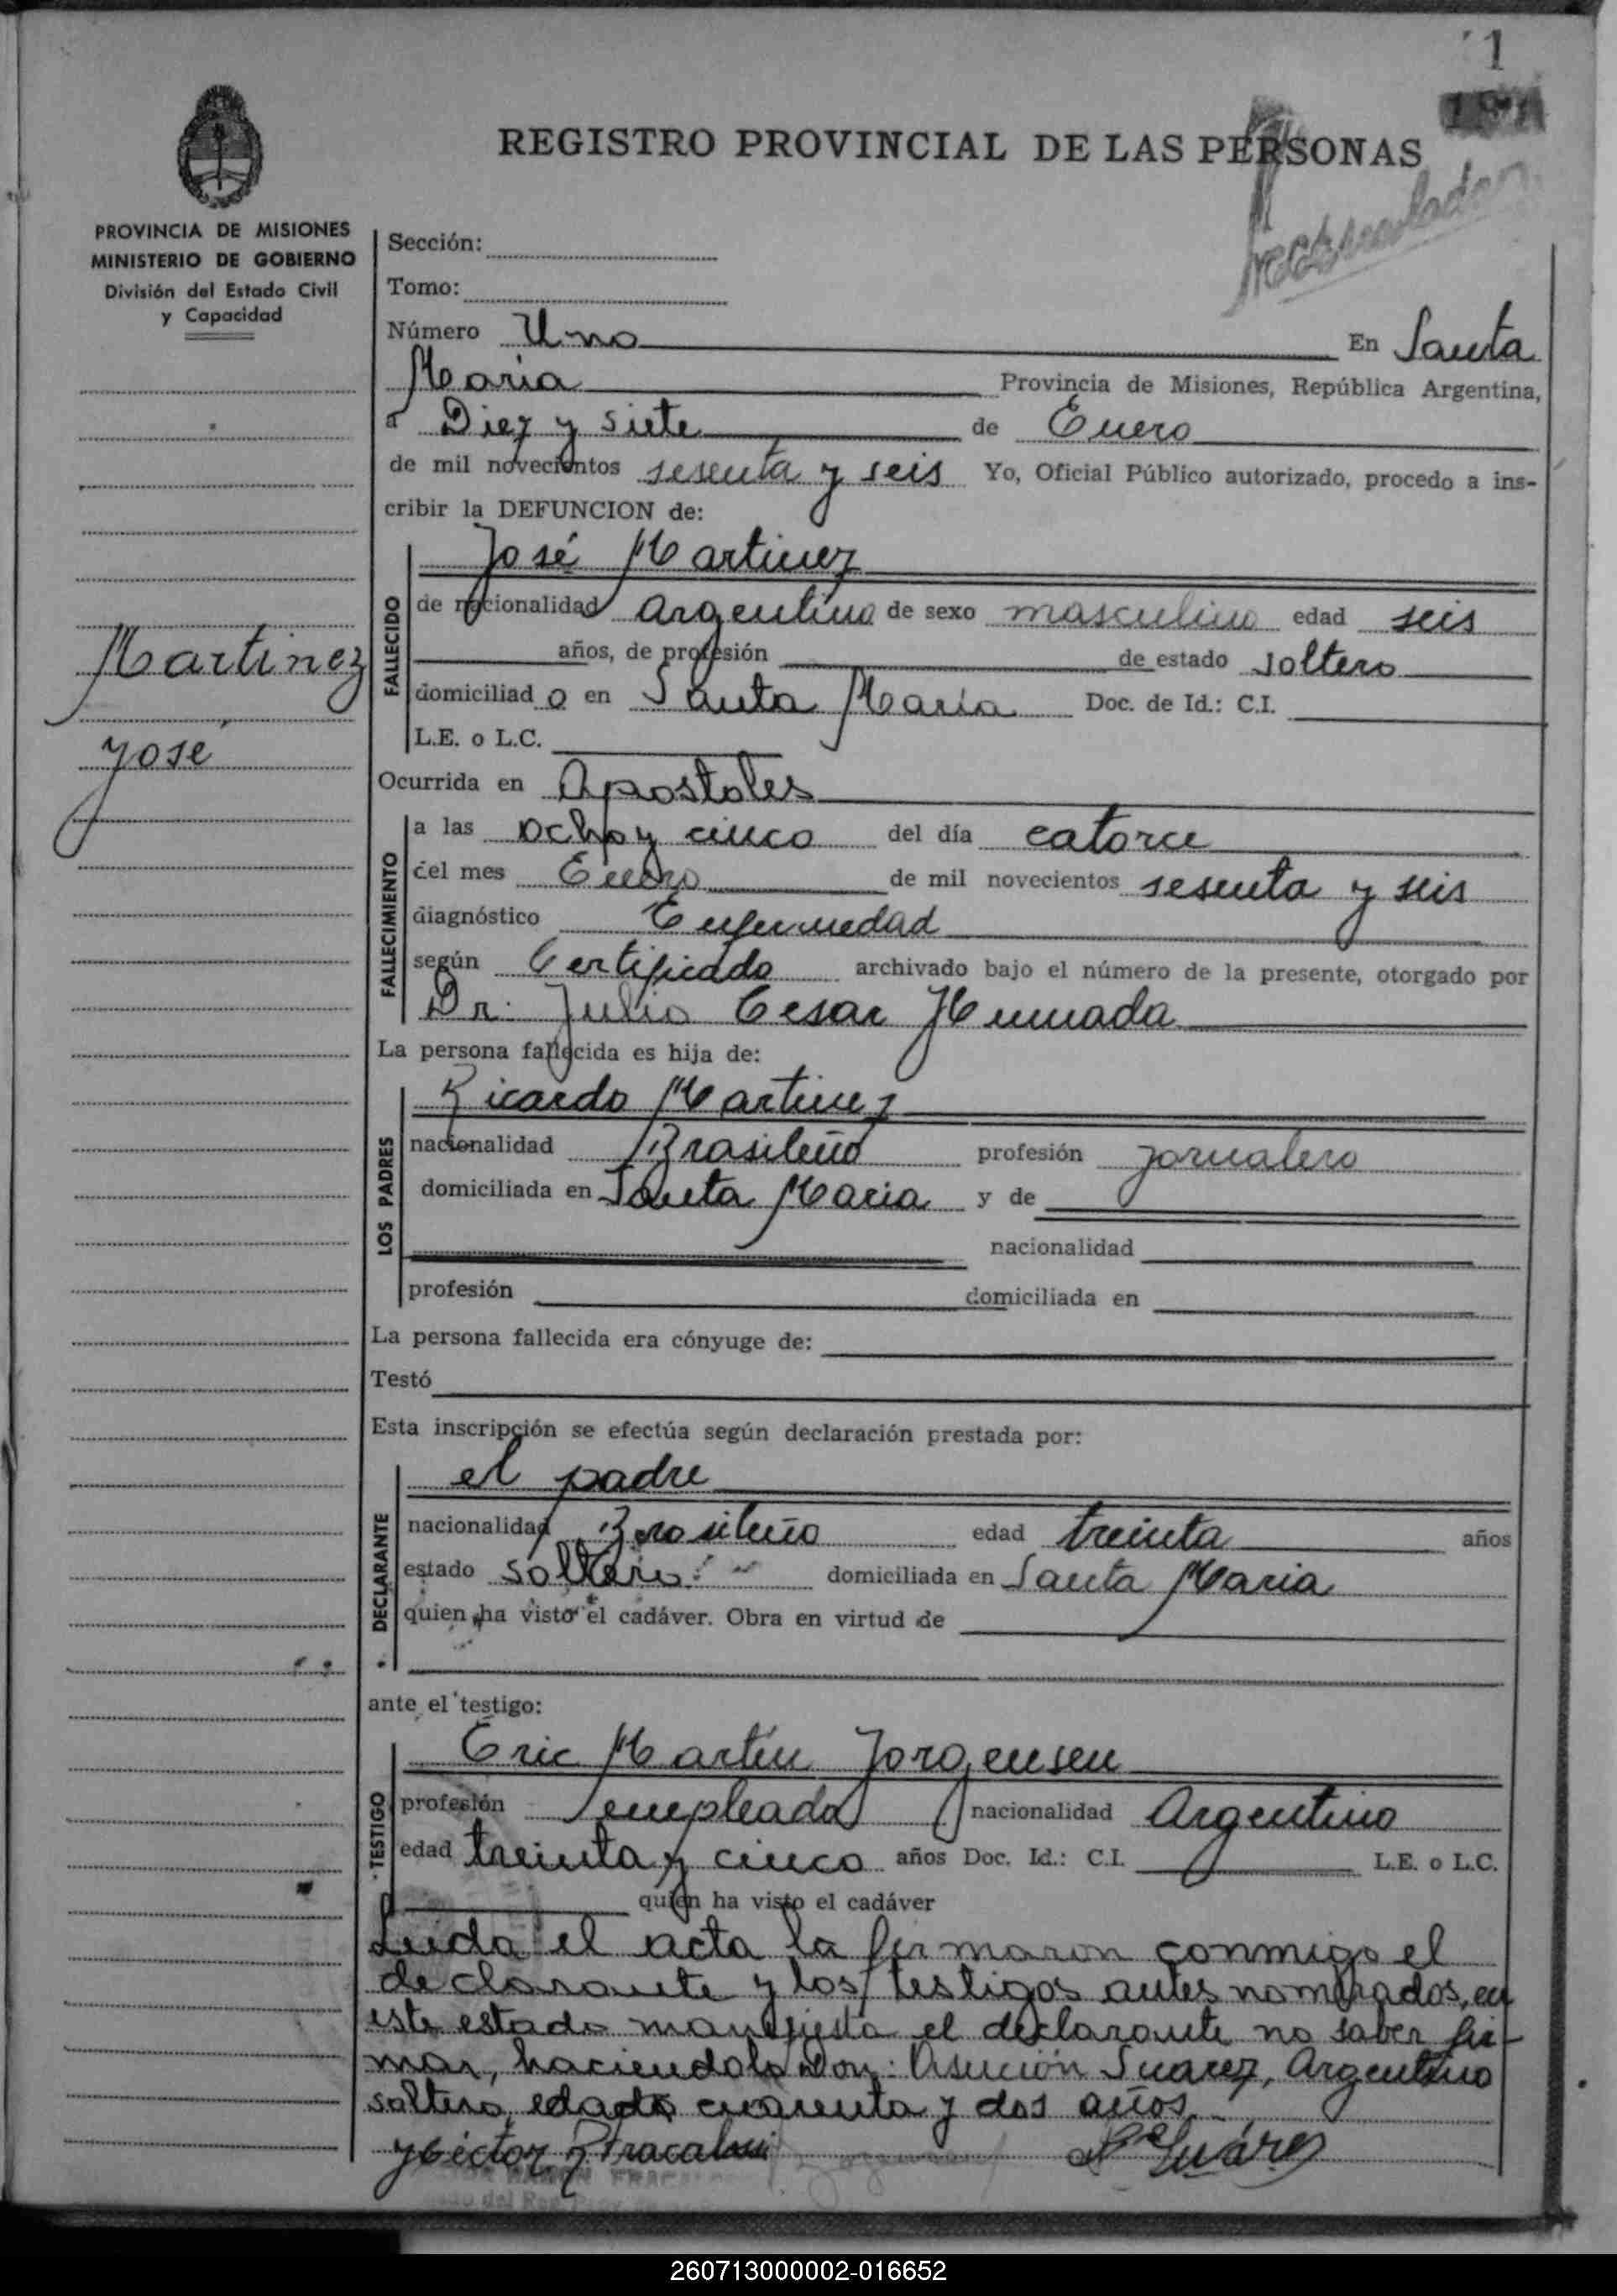 1
REGISTRO PROVINCIAL DE LAS PERSONAS
PROVINCIA DE MISIONES
MINISTERIO DE GOBIERNO
División del Estado Civil
y Capacidad
Martinez
José
Sección:
Tomo:
Número Uno En Santa
Maria Provincia de Misiones, República Argentina,
a Diez y siete de Enero
de mil novecientos sesenta y seis Yo, Oficial Público autorizado, procedo a ins-
cribir la DEFUNCION de:
FALLECIDO
José Martinez
de nacionalidad Argentino de sexo masculino edad seis
años, de profesión de estado soltero
domiciliad o en Santa Maria Doc. de Id.: C.I.
L.E. o L.C.
Ocurrida en Apostoles
FALLECIMIENTO
a las ocho y cinco del día catorce
del mes Enero de mil novecientos sesenta y seis
diagnóstico Enfermedad
según Certificado archivado bajo el número de la presente, otorgado por
Dr. Julio Cesar
La persona fallecida es hija de:
LOS PADRES
Ricardo Martinez
nacionalidad Brasileño profesión Jornalero
domiciliada en Santa Maria y de
nacionalidad
profesión domiciliada en
La persona fallecida era cónyuge de:
Testó
Esta inscripción se efectúa según declaración prestada por:
DECLARANTE
el padre
nacionalidad Brasileño edad treinta años
estado soltero domiciliada en Santa Maria
quien ha visto el cadáver. Obra en virtud de
ante el testigo:
TESTIGO
Eric Martin Jorgensen
profesión empleado nacionalidad Argentino
edad treinta y cinco años Doc. Id.: C.I. L.E. o L.C.
quien ha visto el cadáver
Leida el acta la firmaron conmigo el
declarante y los testigos antes nombrados, en
este estado manifiesta el declarante no saber fir-
mar, haciendolo Don: Asunción Suarez, Argentino
soltero, edado cuarenta y dos años
Suárez
260713000002-016652